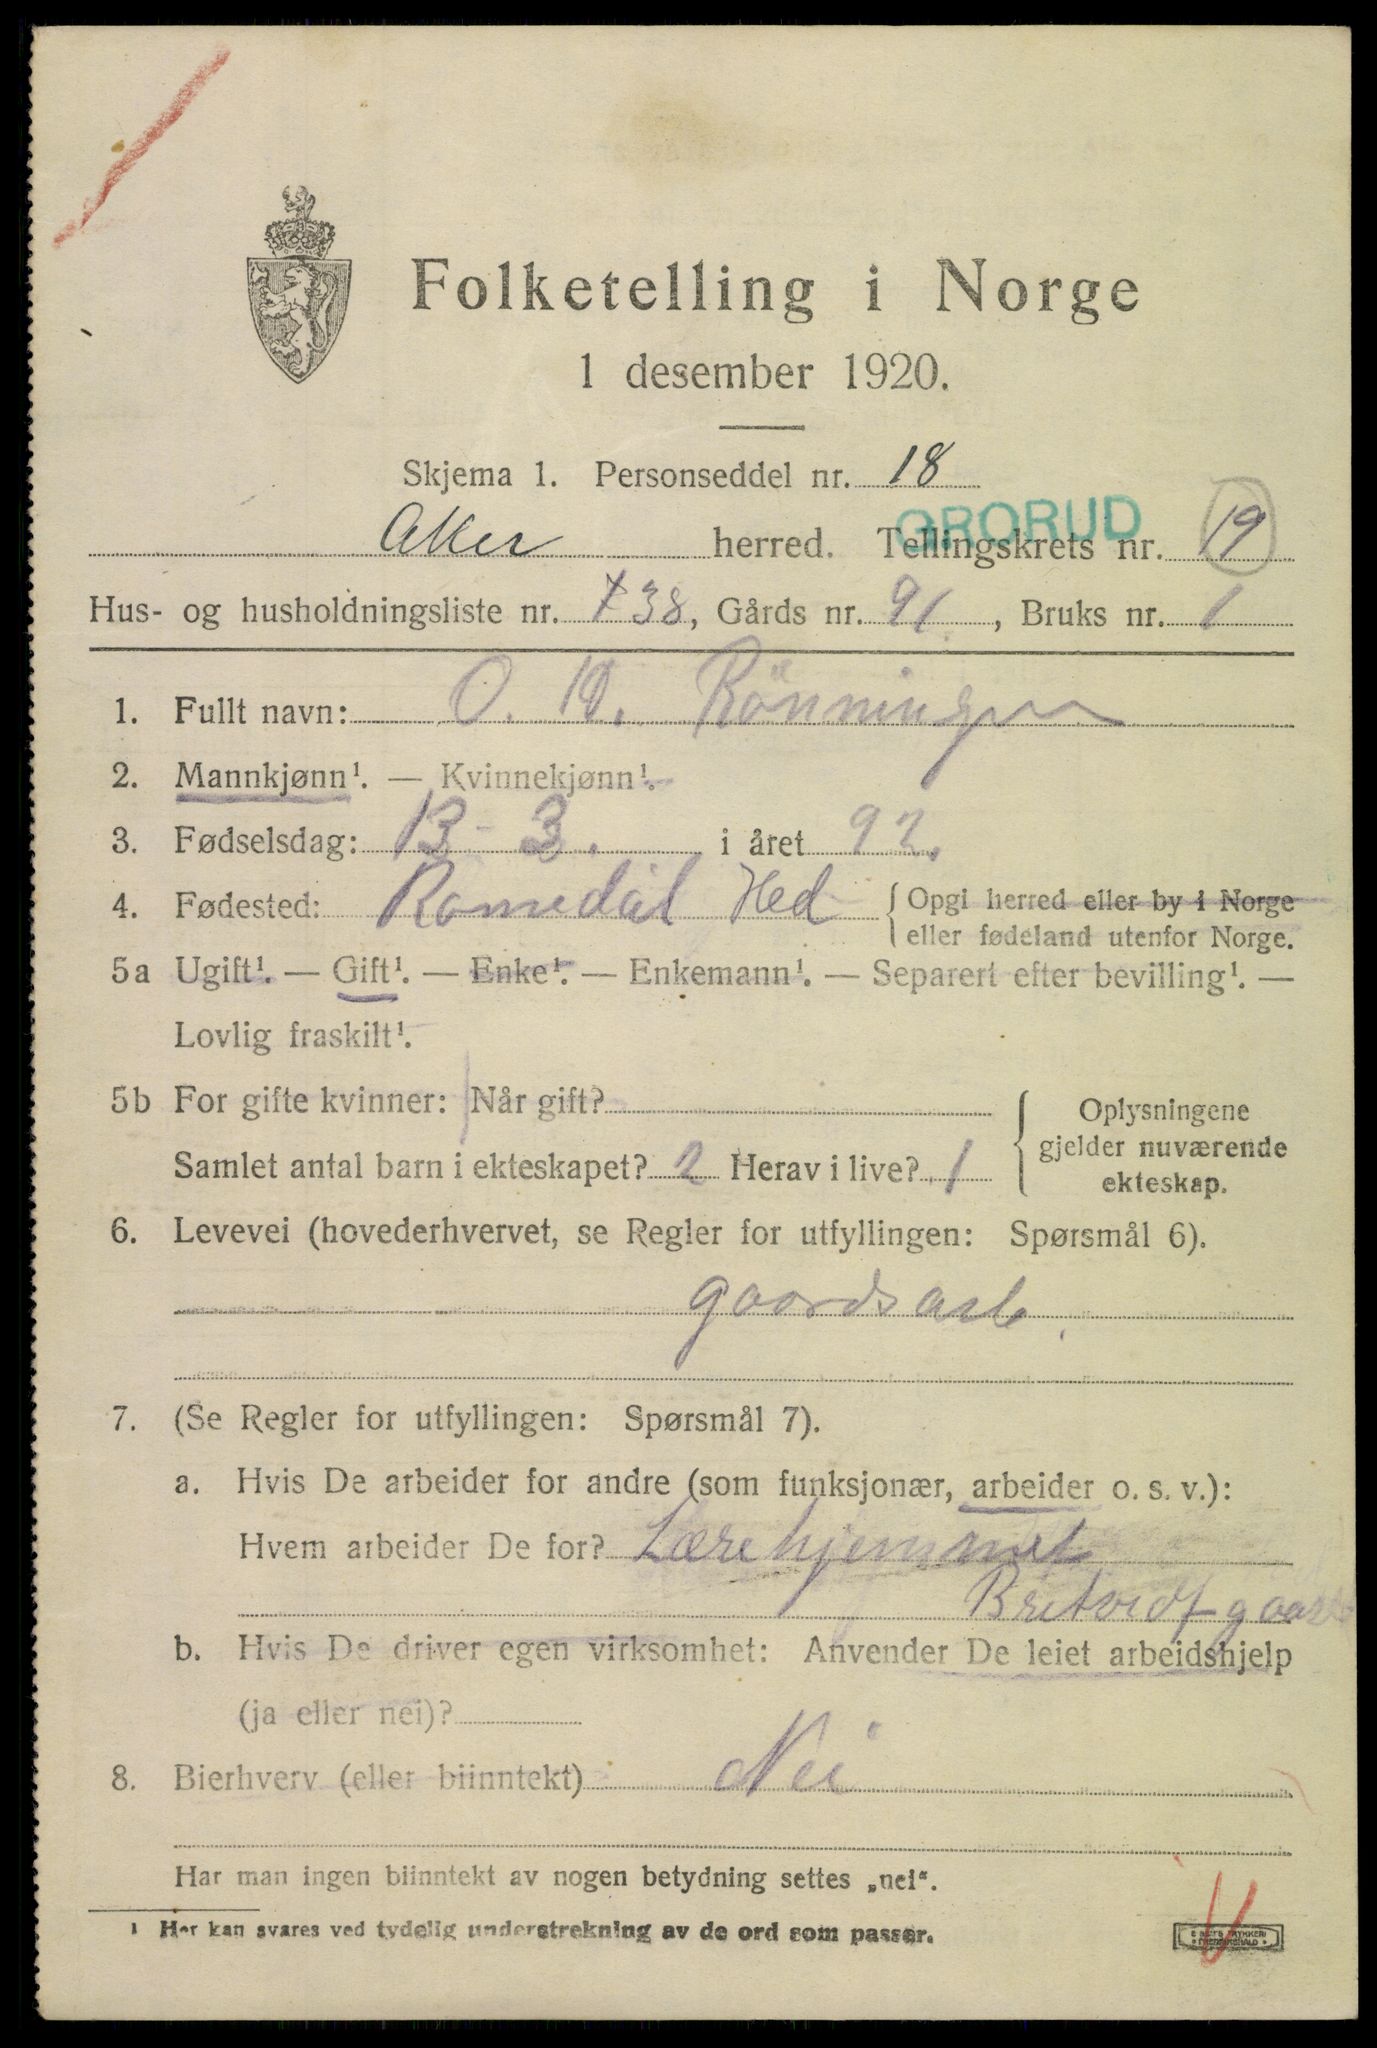 Folketelling i Norge
1 desember 1920.
Skjema 1. Personseddel nr. 18
GRORUD
Aker herred. Tellingskrets nr. 19
Hus- og husholdningsliste nr. 38, Gårds nr. 91, Bruks nr. 1
1. Fullt navn: O. Rönningen
2. Mannkjønn¹. — Kvinnekjønn¹.
3. Fødselsdag: 13-3. i året 92.
4. Fødested: Romedal Hed { Opgi herred eller by i Norge
eller fødeland utenfor Norge.
5a Ugift¹. — Gift¹. — Enke¹. — Enkemann¹. — Separert efter bevilling¹. —
Lovlig fraskilt¹.
5b For gifte kvinner: Når gift?
Samlet antal barn i ekteskapet? 2 Herav i live? 1
Oplysningene
gjelder nuværende
ekteskap.
6. Levevei (hovederhvervet, se Regler for utfyllingen: Spørsmål 6).
gaardsarb.
7. (Se Regler for utfyllingen: Spørsmål 7).
a. Hvis De arbeider for andre (som funksjonær, arbeider o. s. v.):
Hvem arbeider De for? Lærehjemmet
Bretvedt gaard
b. Hvis De driver egen virksomhet: Anvender De leiet arbeidshjelp
(ja eller nei)?
8. Bierhverv (eller biinntekt) Nei
Har man ingen biinntekt av nogen betydning settes „nei“.
¹ Her kan svares ved tydelig understrekning av de ord som passer.